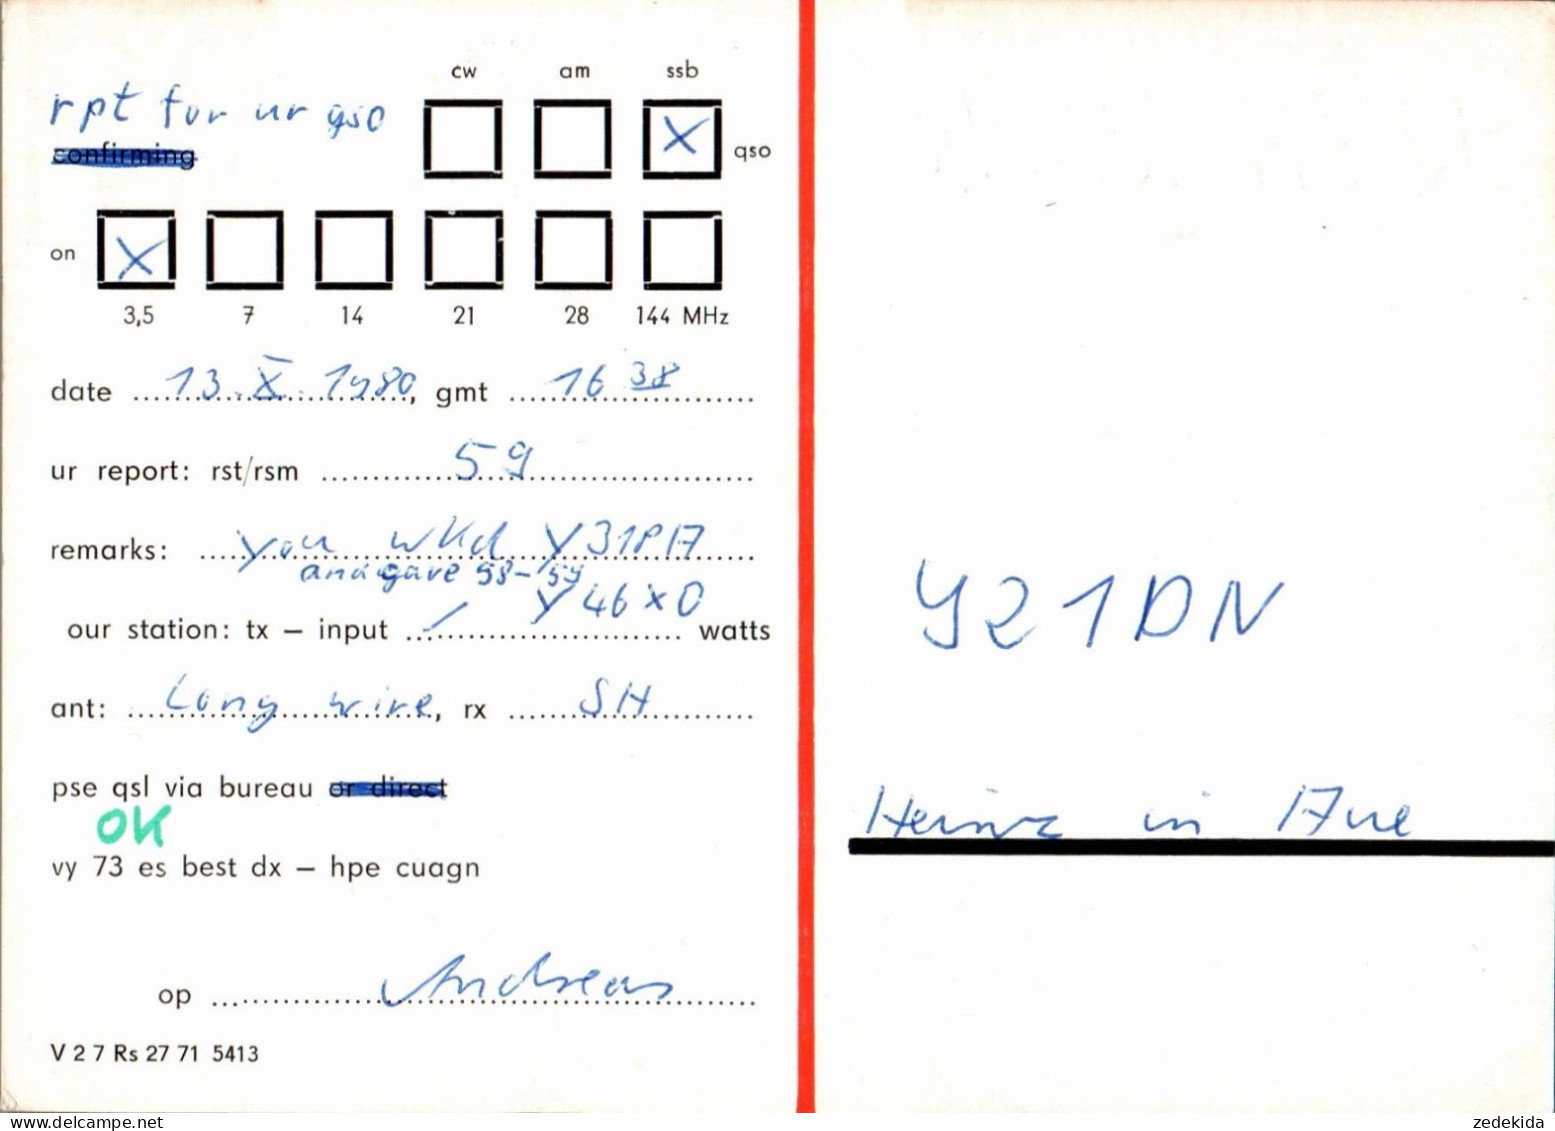 cw am ssb
rpt for ur qso
confirming
qso
on
3,5 7 14 21 28 144 MHz
date 13.X.1980, gmt 16 38
ur report: rst/rsm 59
remarks: you wkd Y31PA
and gave 58-59
Y46XO
our station: tx – input / watts
ant: Long wire, rx SH
pse qsl via bureau or direct
OK
vy 73 es best dx – hpe cuagn
op Andreas
V 2 7 Rs 27 71 5413
Y21DN
Heinz in Aue
www.delcampe.net
zedekida